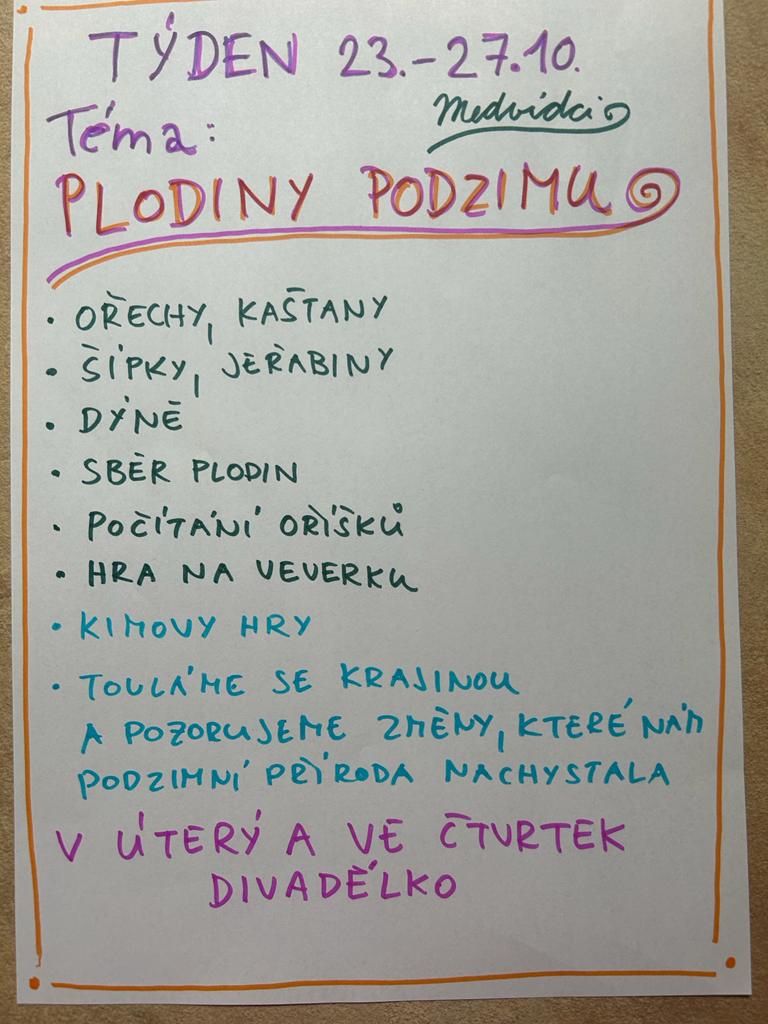 TÝDEN 23.-27.10.
Medvídci
Téma:
PLODINY PODZIMU
• OŘECHY, KAŠTANY
• ŠÍPKY, JEŘABINY
• DÝNĚ
• SBĚR PLODIN
• POČÍTÁNÍ OŘÍŠKŮ
• HRA NA VEVERKU
• KIMOVY HRY
• TOULÁME SE KRAJINOU
A POZORUJEME ZMĚNY, KTERÉ NÁM
PODZIMNÍ PŘÍRODA NACHYSTALA
V ÚTERÝ A VE ČTVRTEK
DIVADÉLKO